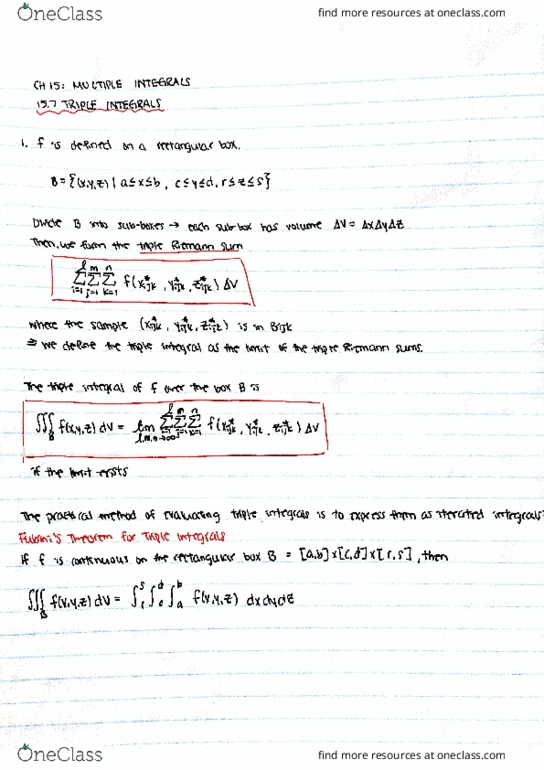 OneClass
find more resources at oneclass.com
CH 15: MULTIPLE INTEGRALS
15.7 TRIPLE INTEGRALS
1. f is defined on a rectangular box.
B = {(x,y,z) | a≤x≤b, c≤y≤d, r≤z≤s}
Divide B into sub-boxes → each sub box has volume ΔV = ΔxΔyΔz
Then, we form the triple Riemann sum
∑_{i=1}^{l} ∑_{j=1}^{m} ∑_{k=1}^{n} f(x*_{ijk}, y*_{ijk}, z*_{ijk}) ΔV
where the sample (x*_{ijk}, y*_{ijk}, z*_{ijk}) is in Bijk
⇒ we define the triple integral as the limit of the triple Riemann sums.
The triple integral of f over the box B is
∭_B f(x,y,z) dV = lim_{l,m,n→∞} ∑_{i=1}^{l} ∑_{j=1}^{m} ∑_{k=1}^{n} f(x*_{ijk}, y*_{ijk}, z*_{ijk}) ΔV
if the limit exists
The practical method of evaluating triple integrals is to express them as iterated integrals:
Fubini's Theorem for Triple Integrals
If f is continuous on the rectangular box B = [a,b]x[c,d]x[r,s], then
∭_B f(x,y,z) dV = ∫_r^s ∫_c^d ∫_a^b f(x,y,z) dxdydz
OneClass
find more resources at oneclass.com